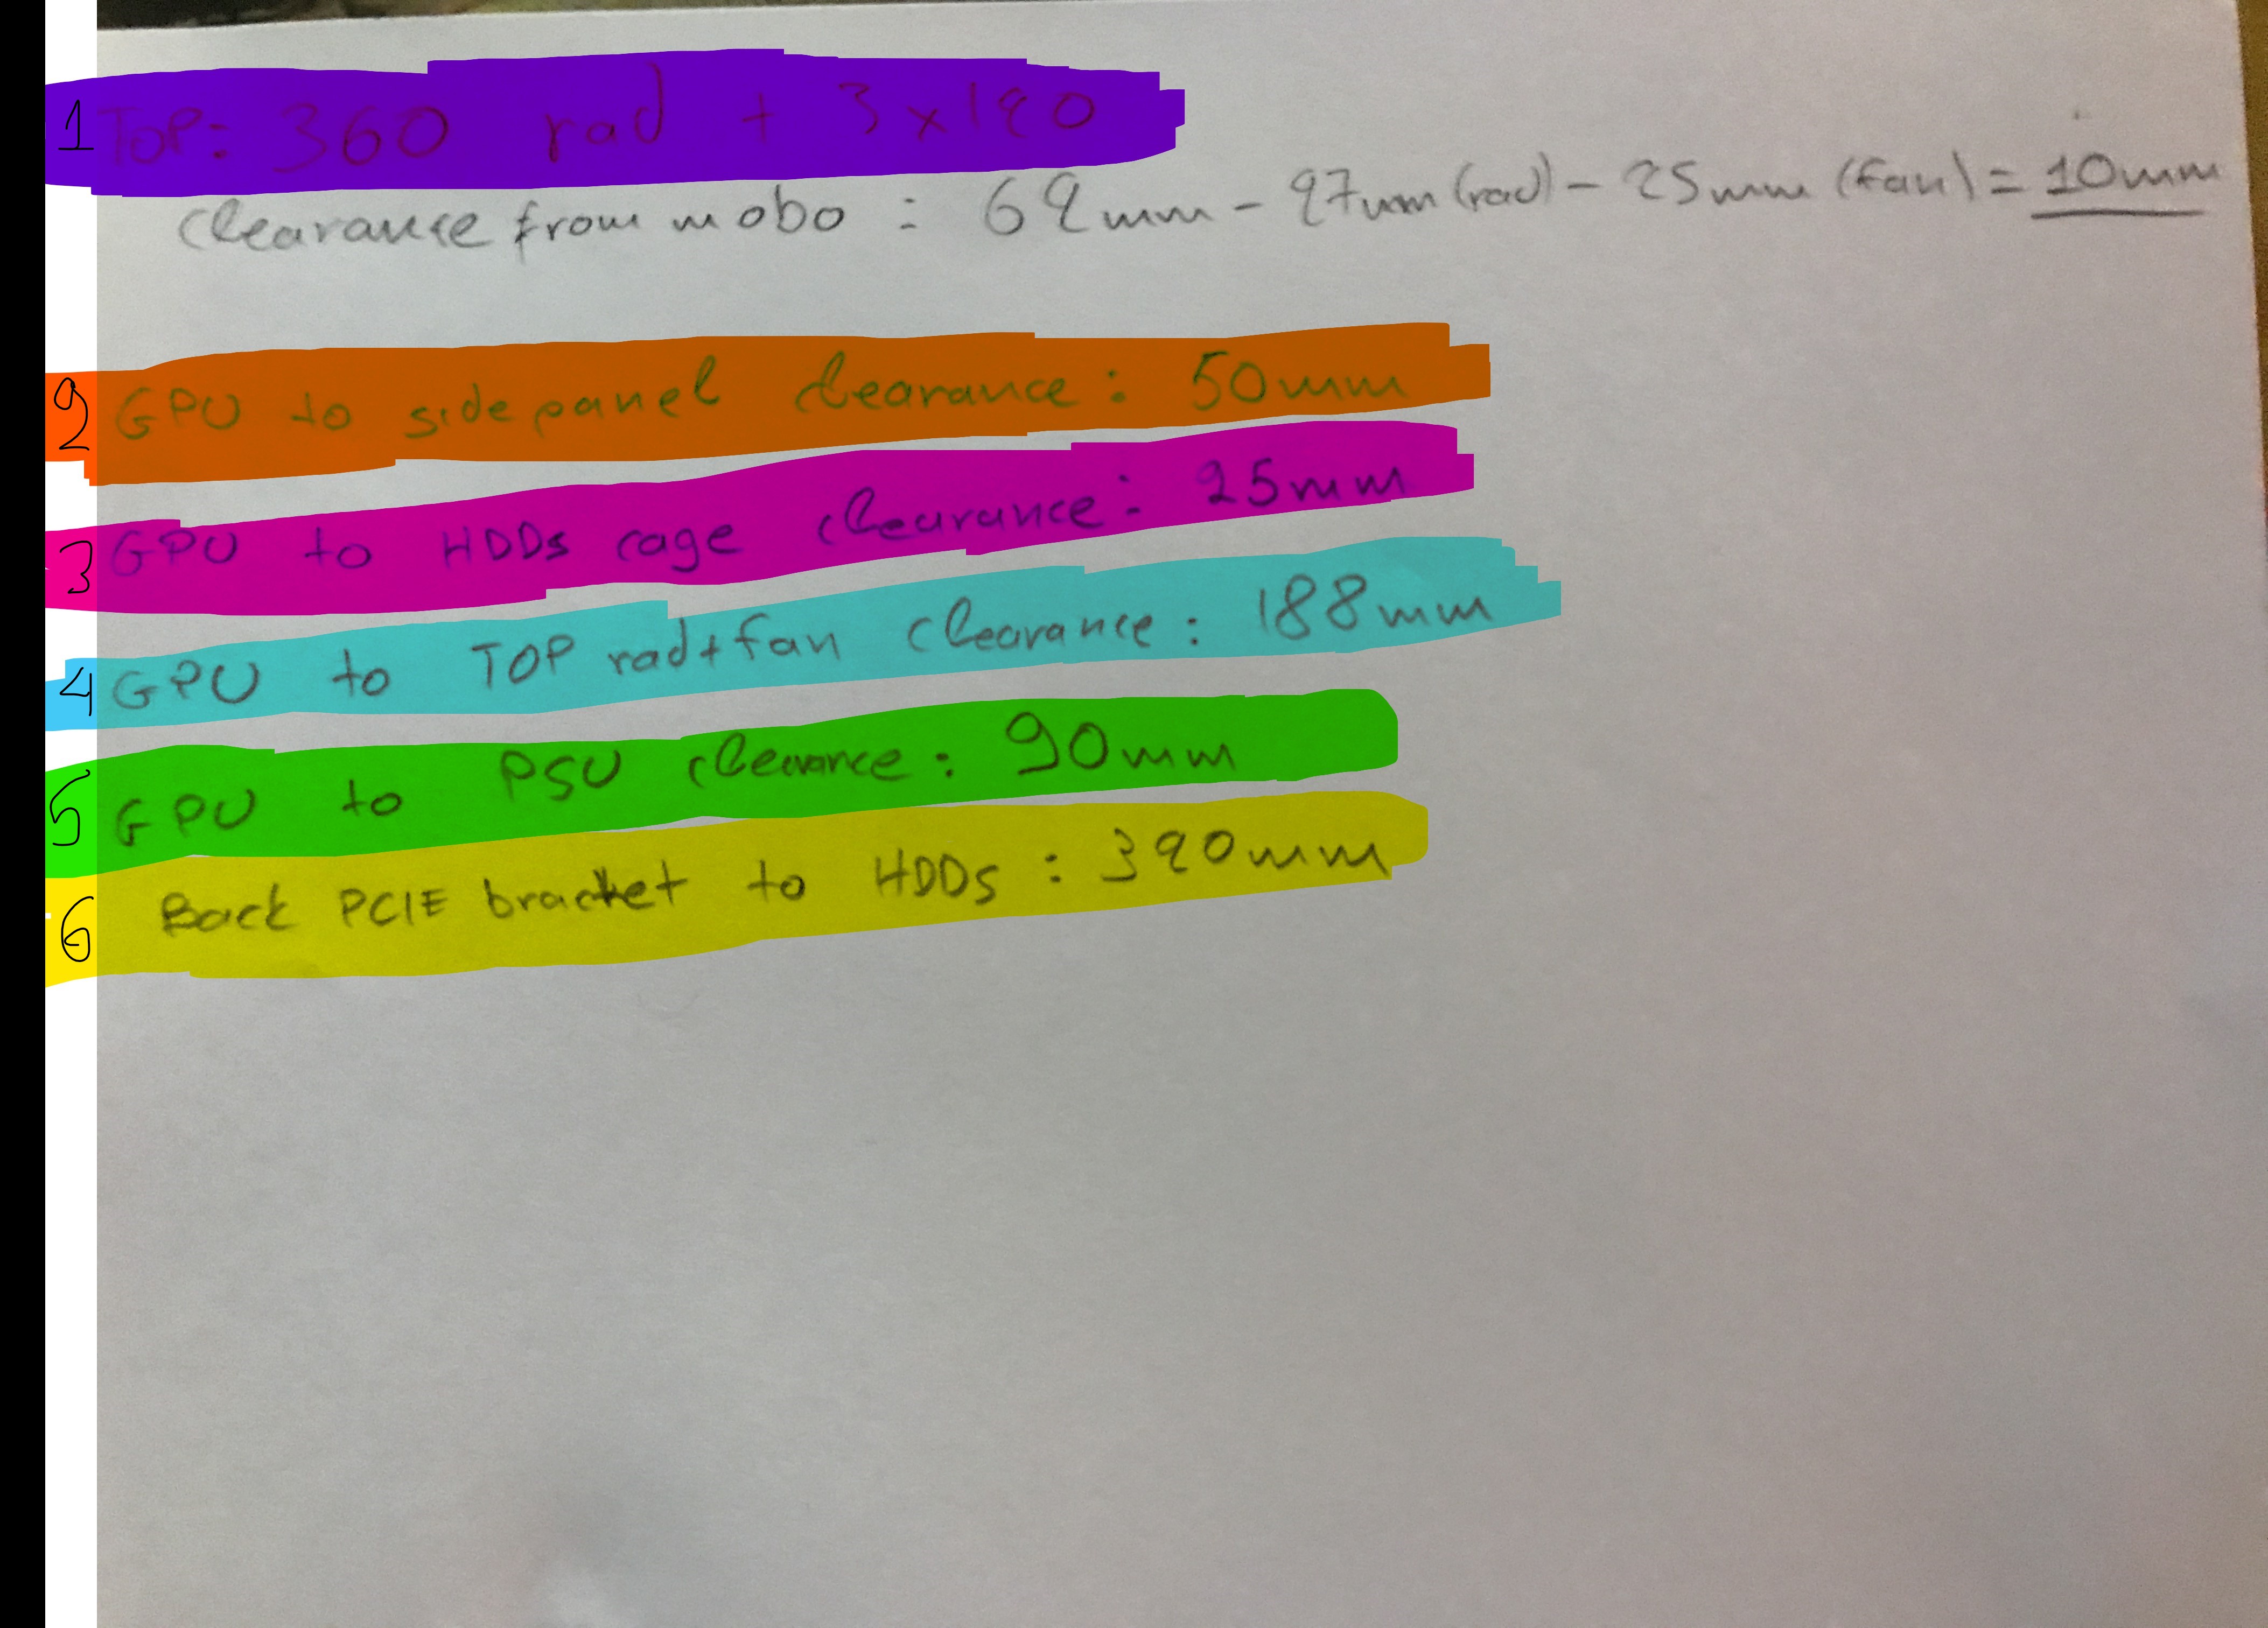 1 TOP: 360 rad + 3x120
clearance from mobo : 62mm - 27mm (rad) - 25mm (fan) = 10mm
2 GPU to side panel clearance: 50mm
3 GPU to HDDs cage clearance: 25mm
4 GPU to TOP rad+fan clearance: 188mm
5 GPU to PSU clearance: 90mm
6 Back PCIE bracket to HDDs : 320mm